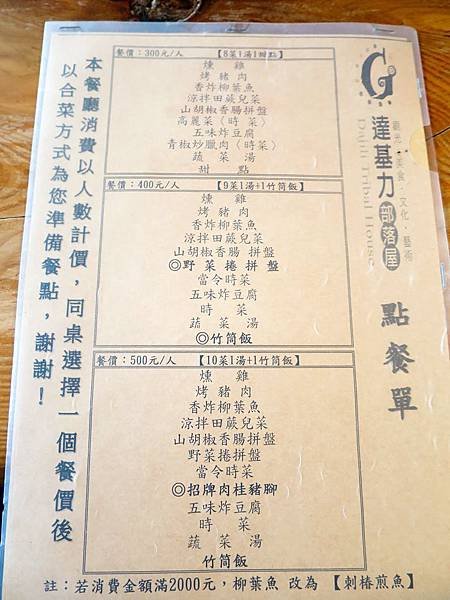 G
觀光·美食·文化·藝術
達基力部落屋
Dajili Tribal House
點餐單
餐價:300元/人 【8菜1湯1甜點】
燻雞
烤豬肉
香炸柳葉魚
涼拌田蕨兒菜
山胡椒香腸拼盤
高麗菜(時菜)
五味炸豆腐
青椒炒臘肉(時菜)
蔬菜湯
甜點
餐價:400元/人 【9菜1湯+1竹筒飯】
燻雞
烤豬肉
香炸柳葉魚
涼拌田蕨兒菜
山胡椒香腸拼盤
◎野菜捲拼盤
當令時菜
五味炸豆腐
時菜
蔬菜湯
◎竹筒飯
餐價:500元/人 【10菜1湯+1竹筒飯】
燻雞
烤豬肉
香炸柳葉魚
涼拌田蕨兒菜
山胡椒香腸拼盤
野菜捲拼盤
當令時菜
◎招牌肉桂豬腳
五味炸豆腐
時菜
蔬菜湯
竹筒飯
本餐廳消費以人數計價,同桌選擇一個餐價後
以合菜方式為您準備餐點,謝謝!
註:若消費金額滿2000元,柳葉魚 改為 【刺椿煎魚】